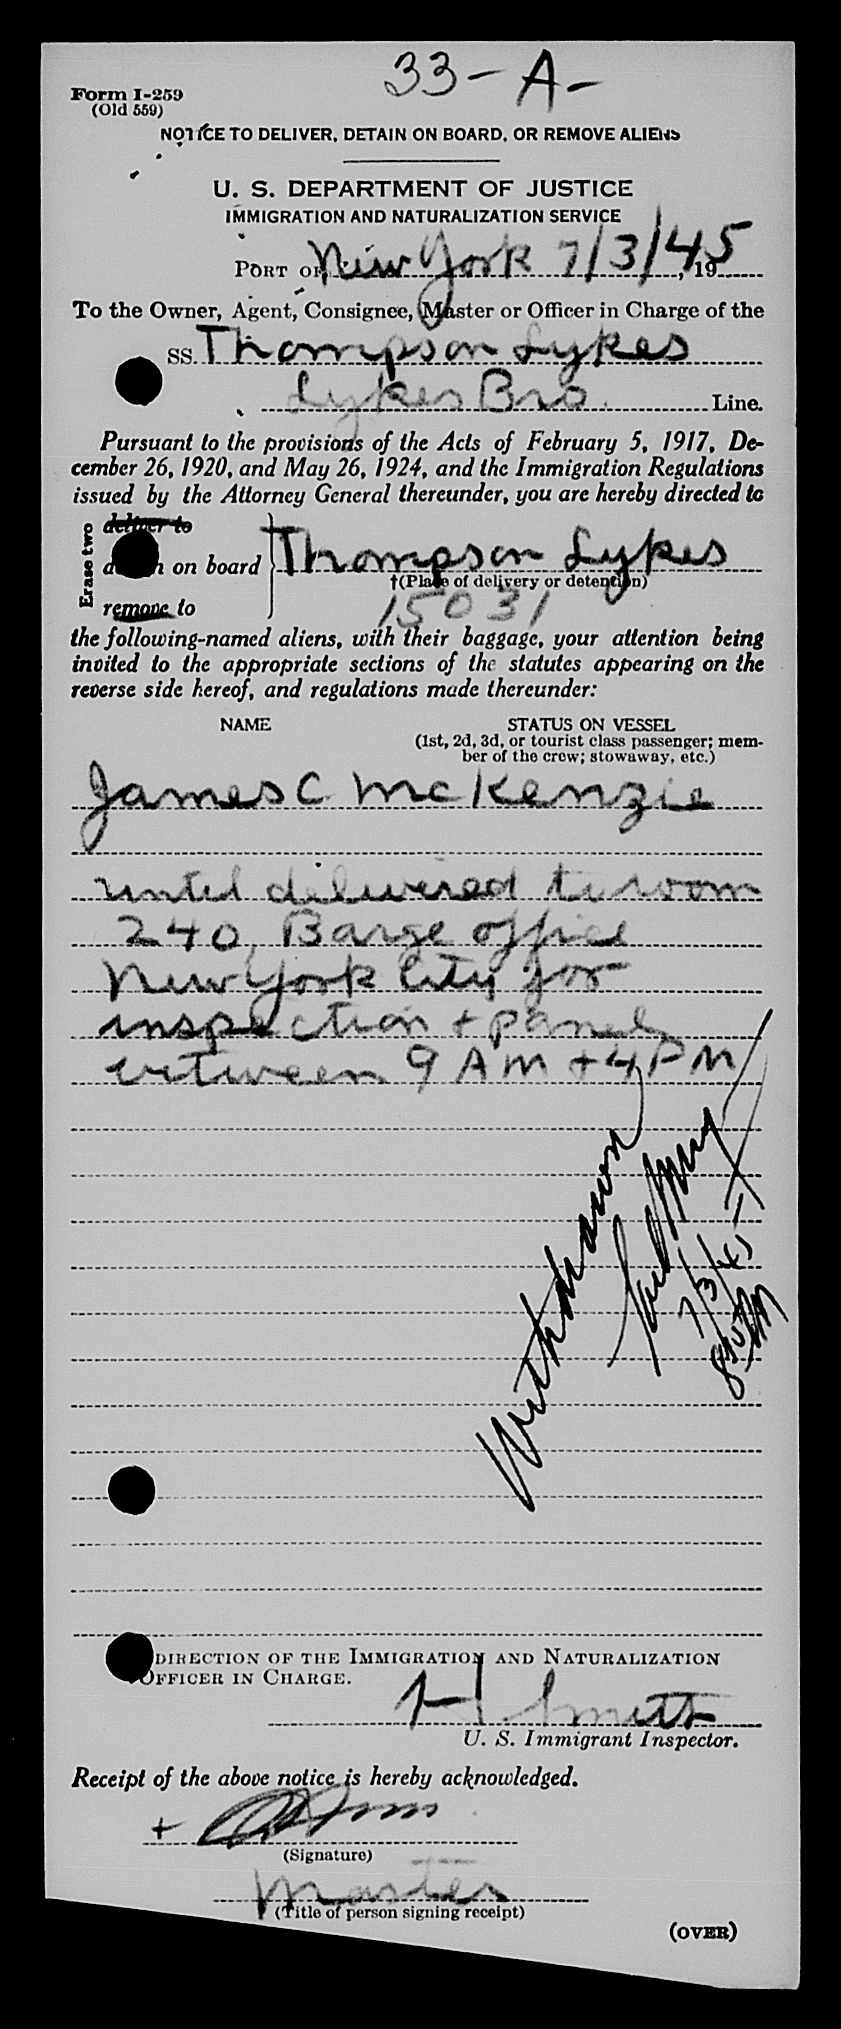 33-A-
Form I-259
(Old 559)
NOTICE TO DELIVER, DETAIN ON BOARD, OR REMOVE ALIENS
U. S. DEPARTMENT OF JUSTICE
IMMIGRATION AND NATURALIZATION SERVICE
PORT OF New York 7/3/45, 19
To the Owner, Agent, Consignee, Master or Officer in Charge of the
SS. Thompson Lykes
Lykes Bro. Line.
Pursuant to the provisions of the Acts of February 5, 1917, De-
cember 26, 1920, and May 26, 1924, and the Immigration Regulations
issued by the Attorney General thereunder, you are hereby directed to
Erase two
deliver to
on board Thompson Lykes
†(Place of delivery or detention)
remove to 15031
the following-named aliens, with their baggage, your attention being
invited to the appropriate sections of the statutes appearing on the
reverse side hereof, and regulations made thereunder:
NAME STATUS ON VESSEL
(1st, 2d, 3d, or tourist class passenger; mem-
ber of the crew; stowaway, etc.)
James C McKenzie
until delivered to room
240, Barge office
New York City for
inspection + panel
between 9 AM + 4 PM
Withdrawn
7/3/45
DIRECTION OF THE IMMIGRATION AND NATURALIZATION
OFFICER IN CHARGE.
H Smith
U. S. Immigrant Inspector.
Receipt of the above notice is hereby acknowledged.
+
(Signature)
Master
(Title of person signing receipt)
(OVER)